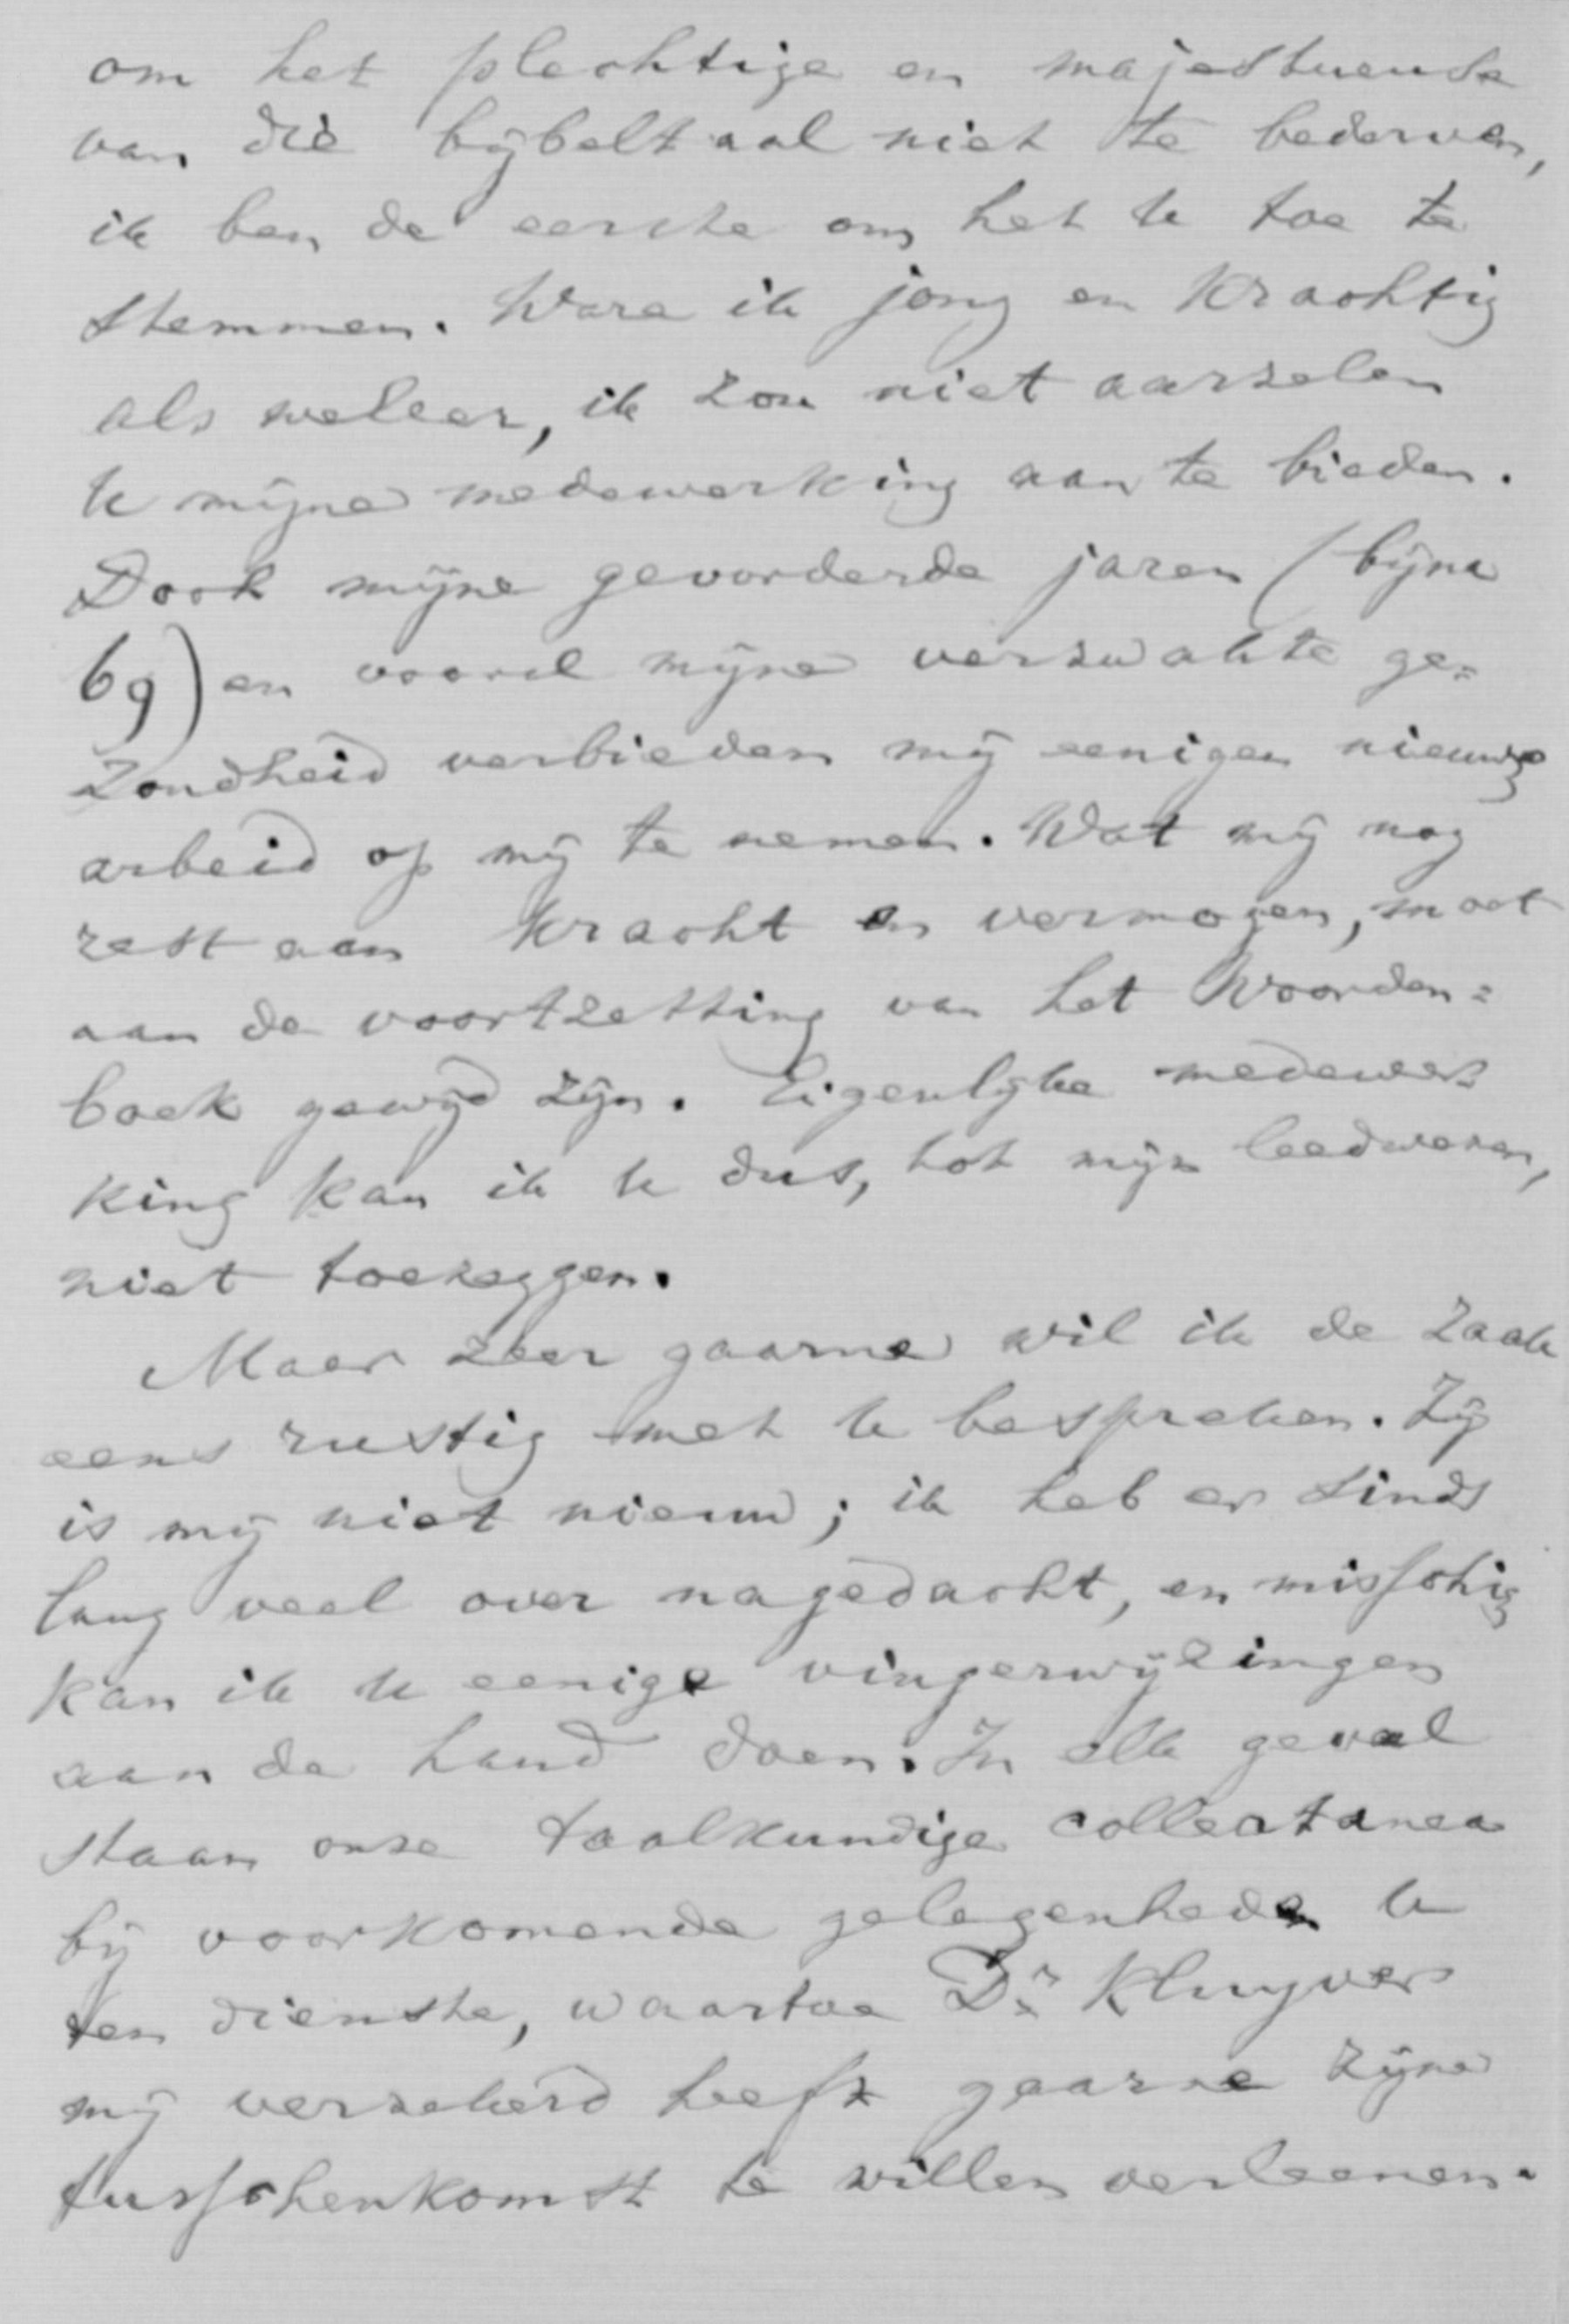 om het plechtige en majestueuse
van die bijbeltaal niet te bederven,
ik ben de eerste om het U toe te
stemmen. Ware ik jong en krachtig
als weleer, ik zou niet aarzelen
U mijne medewerking aan te bieden.
Doch mijne gevorderde jaren (bijna
69) en vooral mijne verzwakte ge=
zondheid verbieden mij eenigen nieuwen
arbeid op mij te nemen. Wat mij nog
rest aan kracht en vermogen, moet
aan de voortzetting van het Woorden=
boek gewijd zijn. Eigenlijke medewer
king kan ik U dus, tot mijn leedwezen,
niet toezeggen.
Maar zeer gaarne wil ik de zaak
eens rustig met U bespreken. Zij
is mij niet nieuw; ik heb er sinds
lang veel over nagedacht, en misschien
kan ik U eenige vingerwijzingen
aan de hand doen. In elk geval
staan onze taalkundige collectanea
bij voorkomende gelegenheden U
ten dienste, waartoe Dr Kluyver
mij verzekerd heeft gaarne zijne
tusschenkomst te willen verleenen.